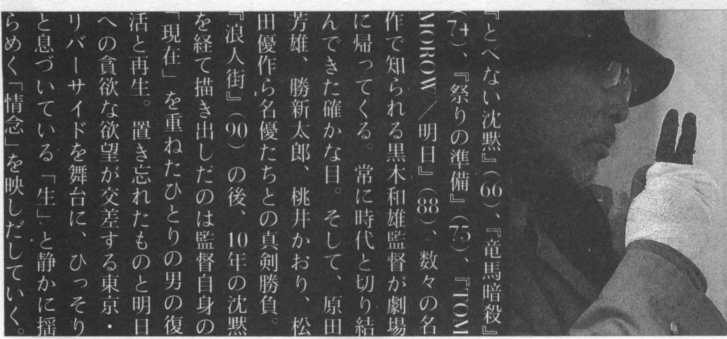 『とべない沈黙』(66)、『竜馬暗殺』
(74)、『祭りの準備』(75)、『TOM
MOROW／明日』(88)、数々の名
作で知られる黒木和雄監督が劇場
に帰ってくる。常に時代と切り結
んできた確かな目。そして、原田
芳雄、勝新太郎、桃井かおり、松
田優作ら名優たちとの真剣勝負。
『浪人街』(90)の後、10年の沈黙
を経て描き出しだのは監督自身の
「現在」を重ねたひとりの男の復
活と再生。置き忘れたものと明日
への貪欲な欲望が交差する東京・
リバーサイドを舞台に、ひっそり
と息づいている「生」と静かに揺
らめく「情念」を映しだしていく。